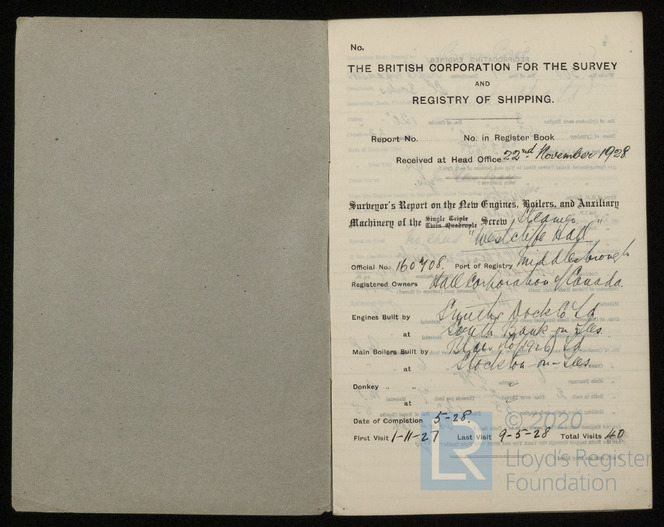 No.
THE BRITISH CORPORATION FOR THE SURVEY
AND
REGISTRY OF SHIPPING.
Report No. No. in Register Book
Received at Head Office 22nd November 1928
Surveyor's Report on the New Engines, Boilers, and Auxiliary
Machinery of the Single Triple Twin Quadruple Screw Steamer
"Westcliffe Hall"
Official No. 160708. Port of Registry Middlesbrough
Registered Owners Hall Corporation of Canada.
Engines Built by Smiths Dock Co Ld
at South Bank on Tees
Main Boilers Built by Blair Co (1926) Ld
at Stockton-on-Tees.
Donkey " "
at
Date of Completion 5-28.
First Visit 1-11-27 Last Visit 9-5-28 Total Visits 40
LR
© 2020
Lloyd's Register
Foundation